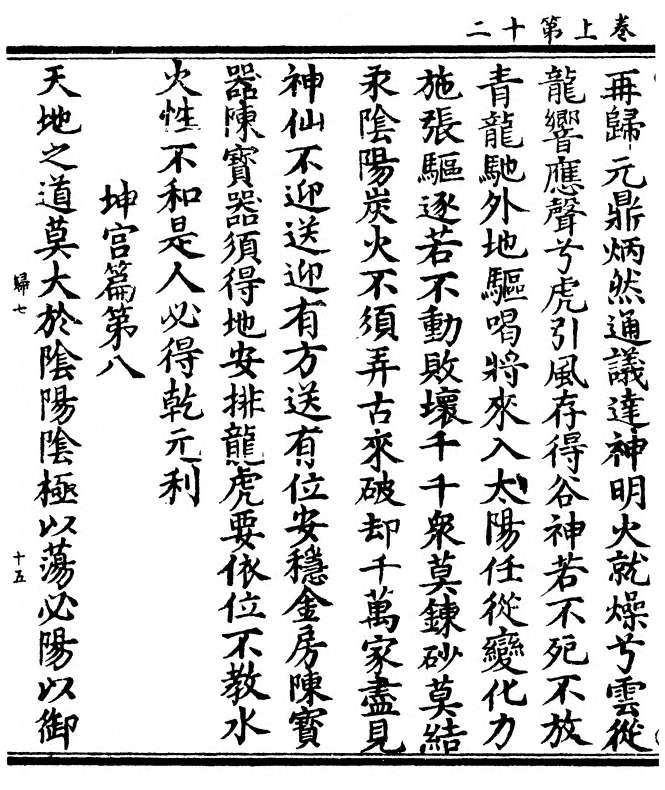 卷上第十二
再歸元鼎炳然通議達神明火就燥兮雲從
龍響應聲兮虎引風存得谷神若不死不放
青龍馳外地驅喝將來入太陽任從變化力
施張驅逐若不動敗壞千千衆莫鍊砂莫結
汞陰陽炭火不須弄古來破却千萬家盡見
神仙不迎送迎有方送有位安穩金房陳寶
器陳寶器須得地安排龍虎要依位不教水
火性不和是人必得乾元利
坤宫篇第八
天地之道莫大於陰陽陰極以蕩必陽以御
歸七
十五